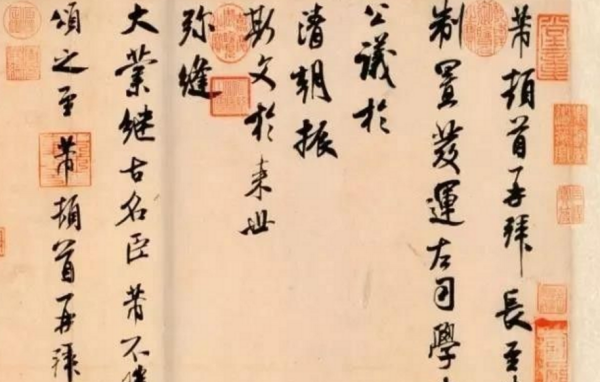 芾頓首再拜長至
制置發運左司學
公議於
清朝振
斯文於来世
弥縫
大業継古名臣芾不勝
頌之至芾頓首再拜